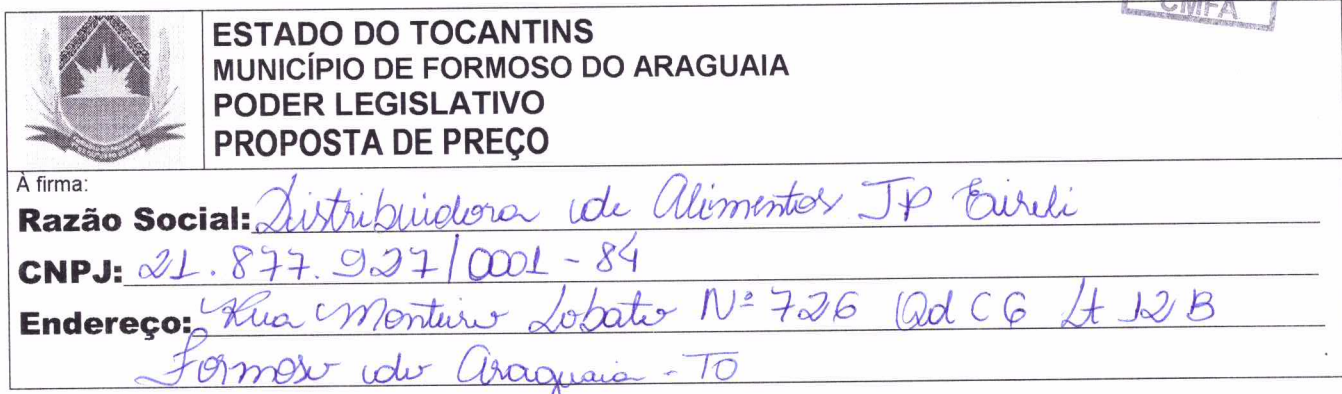 CMFA
ESTADO DO TOCANTINS
MUNICÍPIO DE FORMOSO DO ARAGUAIA
PODER LEGISLATIVO
PROPOSTA DE PREÇO
À firma:
Razão Social: Distribuidora de Alimentos JP Eireli
CNPJ: 21.877.927/0001-84
Endereço: Rua Monteiro Lobato Nº 726 Qd C6 Lt 12B
Formoso do Araguaia-TO